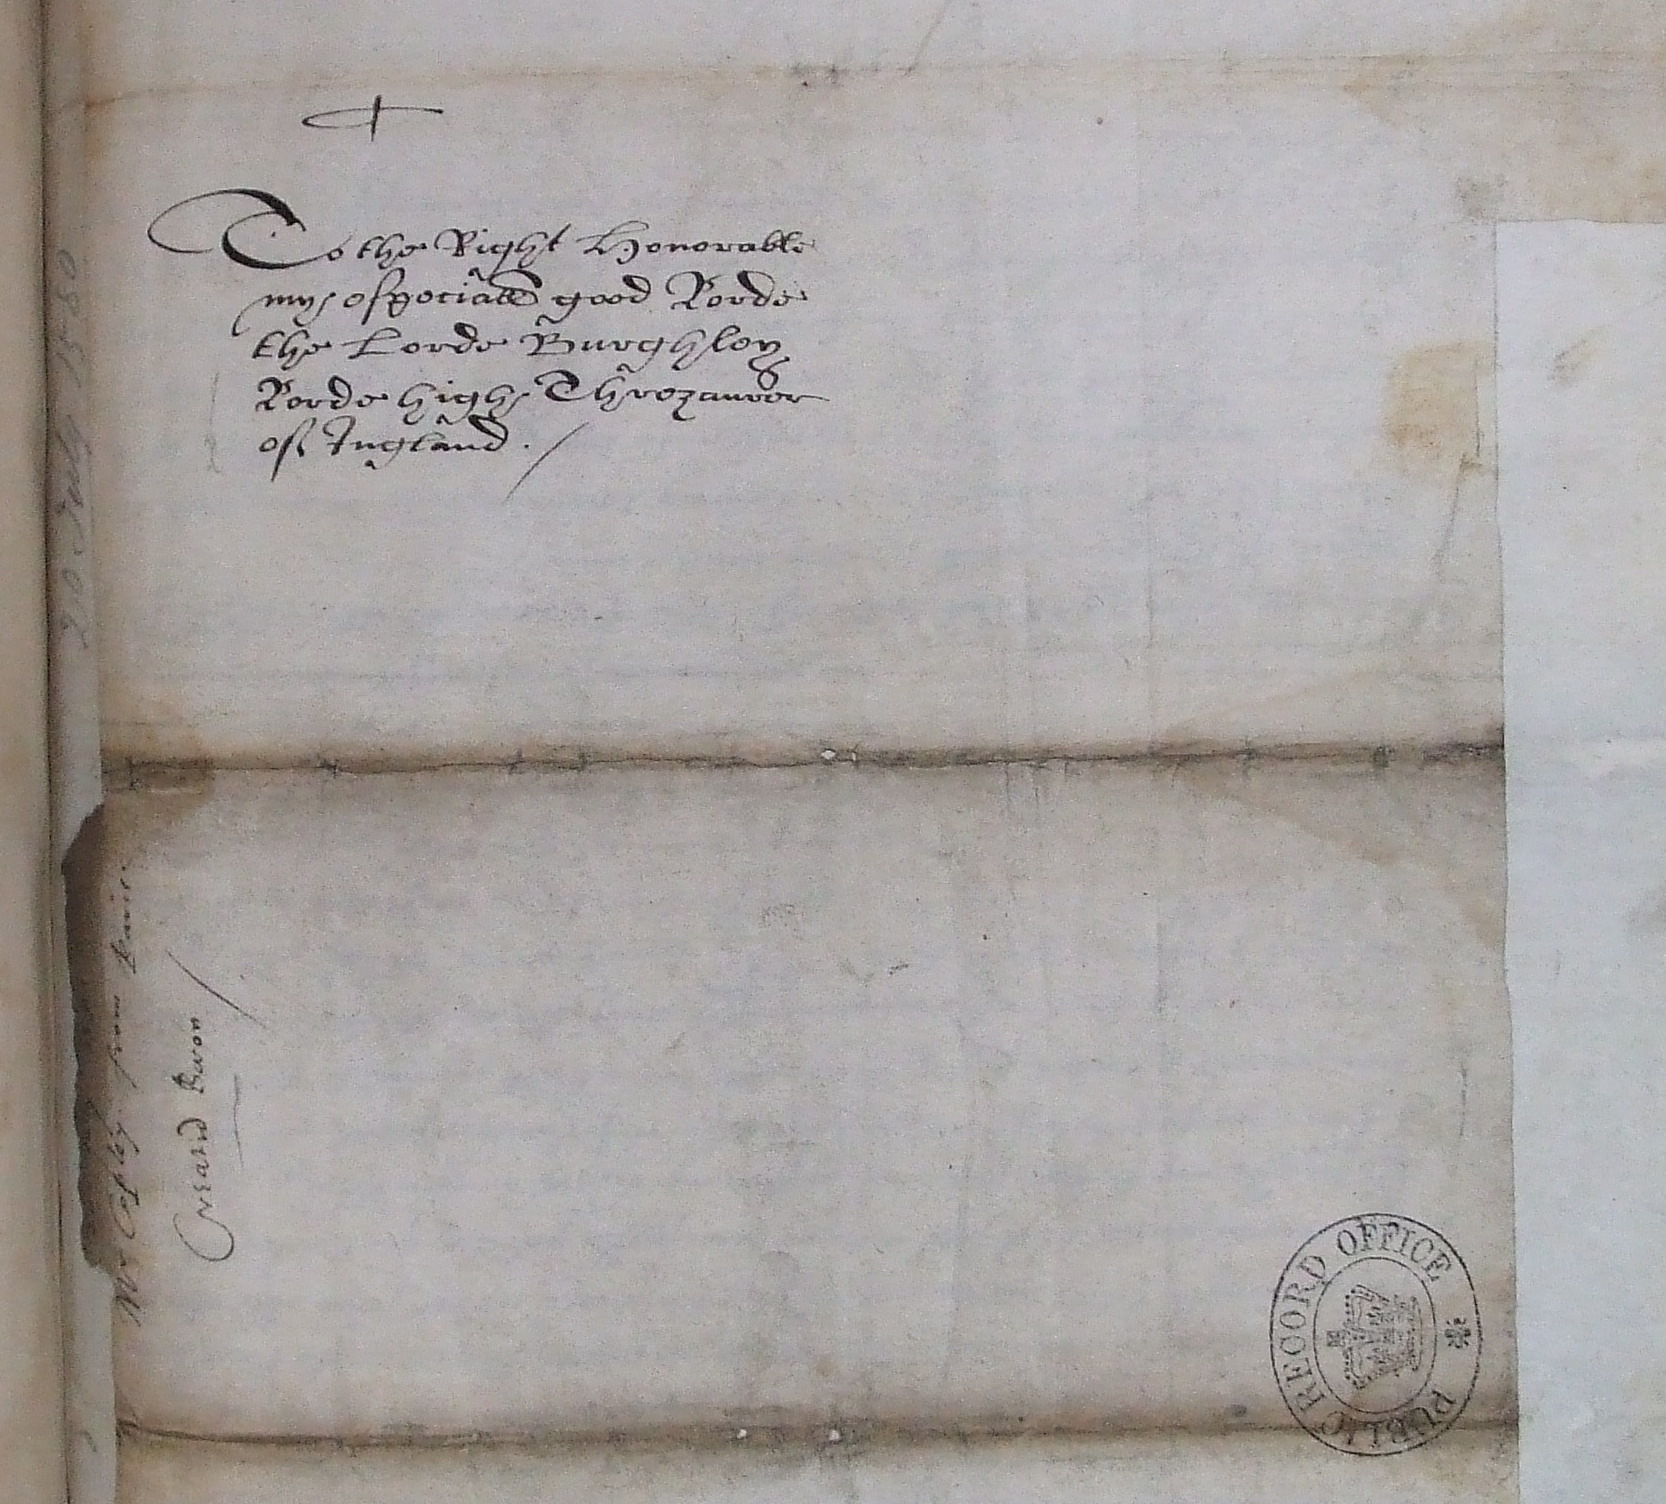 To the Right Honorable
my especiall good Lorde
the Lorde Burghley
Lorde high Threzaurer
of Ingland ./
20 July 1580
Mr Copley from Paris.
PUBLIC RECORD OFFICE